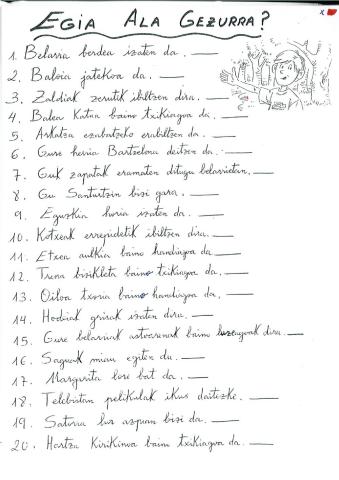 EGIA ALA GEZURRA?
1. Belarra berdea izaten da.
2. Baloia jatekoa da.
3. Zaldiak zerutik ibiltzen dira.
4. Balea katua baino txikiagoa da.
5. Arkatza ezabatzeko erabiltzen da.
6. Gure herria Bartzelona deitzen da.
7. Guk zapatak eramaten ditugu belarrietan.
8. Gu Santurtzin bizi gara.
9. Eguzkia horia izaten da.
10. Kotxeak errepidetik ibiltzen dira.
11. Etxea aulkia baino handiagoa da.
12. Trena bizikleta baino txikiagoa da.
13. Oiloa txoria baino handiagoa da.
14. Hodeiak grisak izaten dira.
15. Gure belarriak astoarenak baino luzeagoak dira.
16. Saguak miau egiten du.
17. Margarita lore bat da.
18. Telebistan pelikulak ikus daitezke.
19. Satorra lur azpian bizi da.
20. Hartza Kirikinoa baino txikiagoa da.